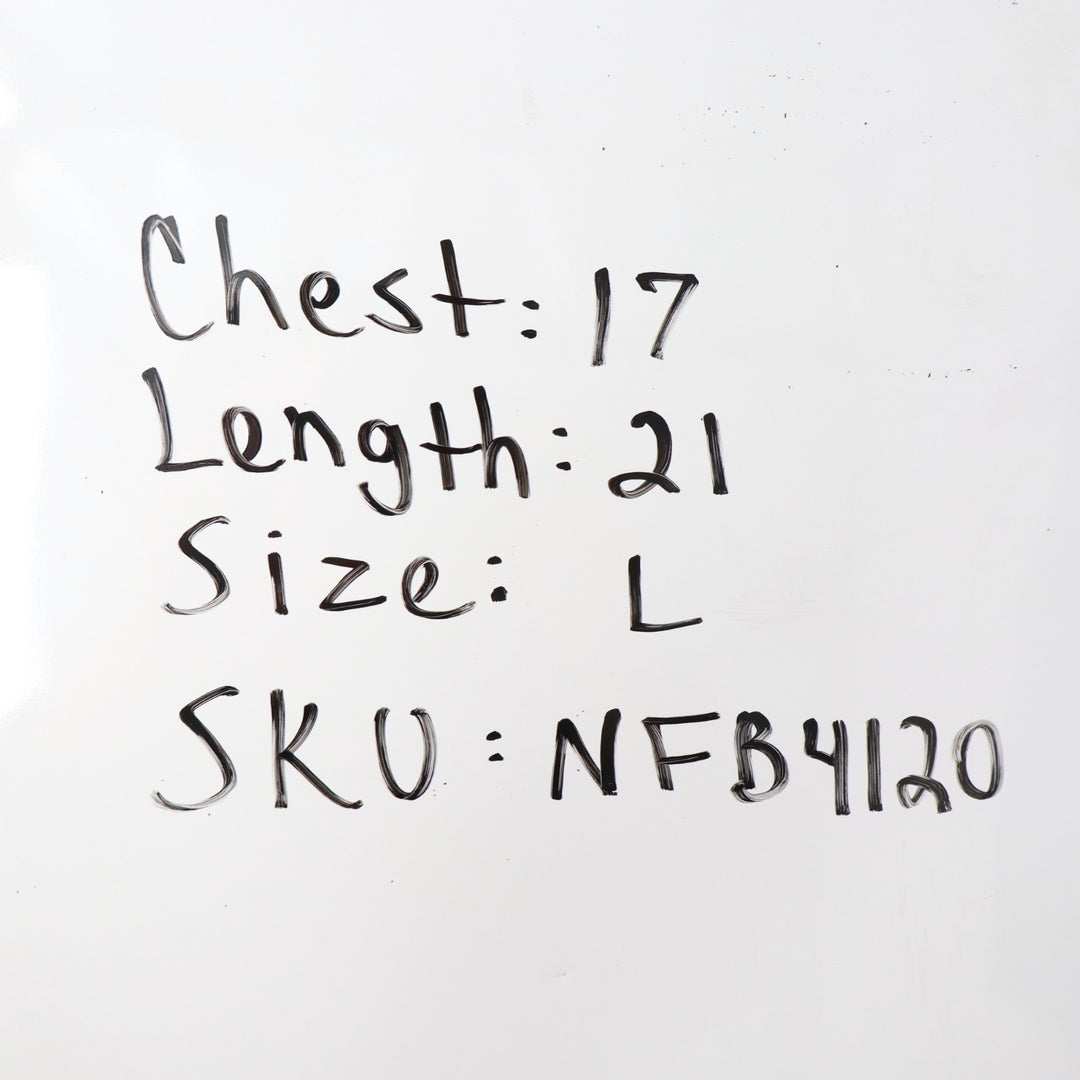 Chest: 17
Length: 21
Size: L
SKU: NFB4120